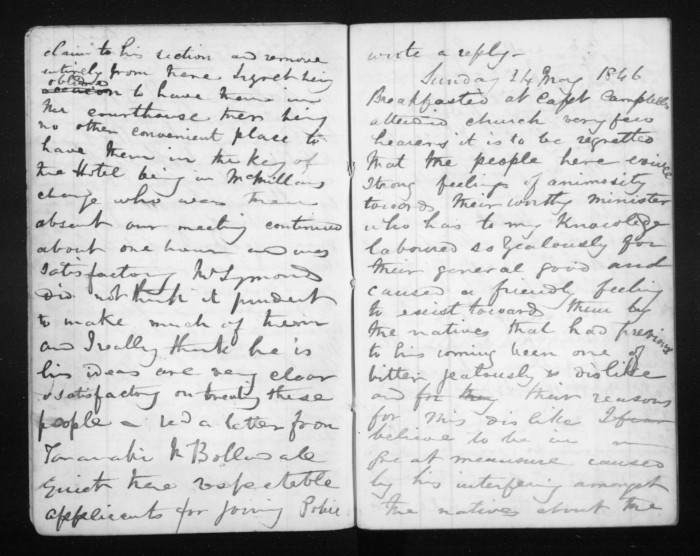 claim to his section and remove
entirely from here I regret being
obliged to have them in
the courthouse there being
no other convenient place to
have them in the key of
the Hotel being in McMillans
charge who was then
absent our meeting continued
about one hour and was
satisfactory Mr Symonds
did not think it prudent
to make much of them
and I really think he is
his ideas are very clear
& satisfactory on treating these
people & red a letter from
Taranaki Mr Bolland all
quiet there respectable
applicants for joining Police
wrote a reply -
Sunday 24 May 1846
Breakfasted at Capt Campbells
attended church very few
hearers it is to be regretted
that the people here evince
strong feelings of animosity
towards their worthy minister
who has to my Knowledge
laboured so zealously for
their general good and
caused a friendly feeling
to exist towards them by
the natives that had previous
to his coming been one of
bitter jealously & dislike
and for their reasons
for this dislike I fear
believe to be in
great measure caused
by his interfering amongst
the natives about the